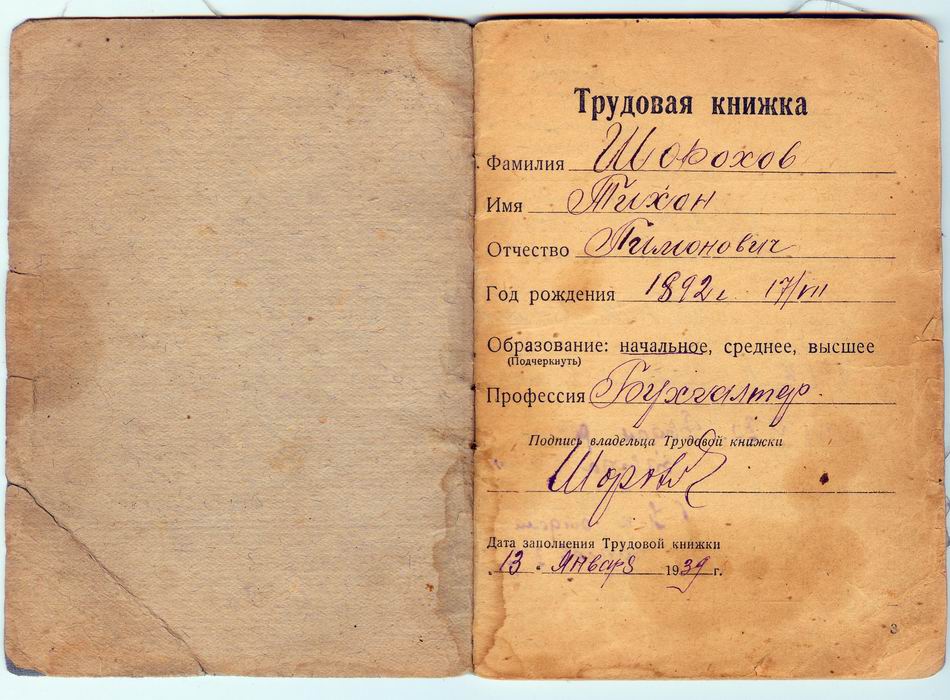 Трудовая книжка
Фамилия Шорохов
Имя Тихон
Отчество Тимонович
Год рождения 1892 г. 17/VII
Образование: начальное, среднее, высшее
(Подчеркнуть)
Профессия Бухгалтер.
Подпись владельца Трудовой книжки
Дата заполнения Трудовой книжки
13 Января 1939 г.
3